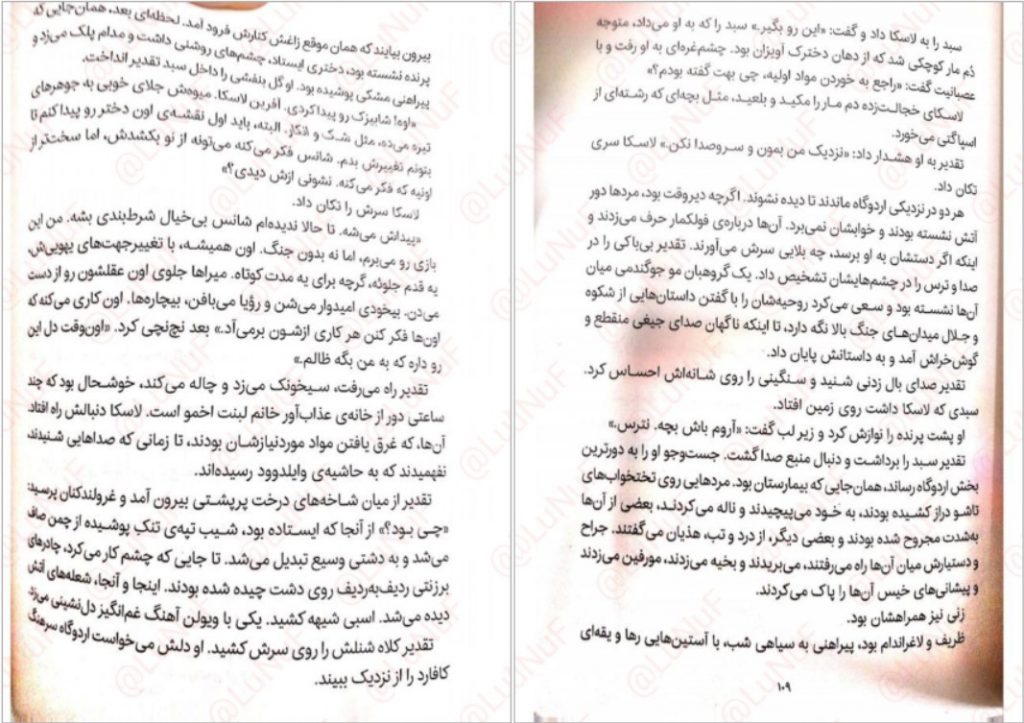 بیرون بیایند که همان موقع زاغش کنارش فرود آمد. لحظه‌ای بعد، همان‌جایی که
پرنده نشسته بود، دختری ایستاد، چشم‌های روشنی داشت و مدام پلک می‌زد و
پیراهنی مشکی پوشیده بود. او گل بنفشی را داخل سبد تقدیر انداخت.
«اوه! شابیزک رو پیدا کردی. آفرین لاسکا. میوه‌ش جلای خوبی به جوهرهای
تیره می‌ده، مثل شک و انکار. البته، باید اول نقشه‌ی اون دختر رو پیدا کنم تا
بتونم تغییرش بدم. شانس فکر می‌کنه می‌تونه از نو بکشدش، اما سخت‌تر از
اونیه که فکر می‌کنه. نشونی ازش دیدی؟»
لاسکا سرش را تکان داد.
«پیداش می‌شه. تا حالا ندیده‌ام شانس بی‌خیال شرط‌بندی بشه. من این
بازی رو می‌برم، اما نه بدون جنگ. اون همیشه، با تغییرجهت‌های یهویی‌ش،
یه قدم جلوئه، گرچه برای یه مدت کوتاه. میراها جلوی اون عقلشون رو از دست
می‌دن. بیخودی امیدوار می‌شن و رؤیا می‌بافن، بیچاره‌ها. اون کاری می‌کنه که
اون‌ها فکر کنن هر کاری ازشون برمی‌آد.» بعد نچ‌نچی کرد. «اون‌وقت دل این
رو داره که به من بگه ظالم.»
تقدیر راه می‌رفت، سیخونک می‌زد و چاله می‌کند، خوشحال بود که چند
ساعتی دور از خانه‌ی عذاب‌آور خانم لبنت اخمو است. لاسکا دنبالش راه افتاد.
آن‌ها، که غرق یافتن مواد موردنیازشان بودند، تا زمانی که صداهایی شنیدند،
نفهمیدند که به حاشیه‌ی وایلدوود رسیده‌اند.
تقدیر از میان شاخه‌های درخت پرپشتی بیرون آمد و غرولندکنان پرسید:
«چی بود؟» از آنجا که ایستاده بود، شیب تپه‌ی تنک پوشیده از چمن صاف
می‌شد و به دشتی وسیع تبدیل می‌شد. تا جایی که چشم کار می‌کرد، چادرهای
برزنتی ردیف‌به‌ردیف روی دشت چیده شده بودند. اینجا و آنجا، شعله‌های آتش
دیده می‌شد. اسبی شیهه کشید. یکی با ویولن آهنگ غم‌انگیز دل‌نشینی می‌زد.
تقدیر کلاه شنلش را روی سرش کشید. او دلش می‌خواست اردوگاه سرهنگ
کافارد را از نزدیک ببیند.
سبد را به لاسکا داد و گفت: «این رو بگیر.» سبد را که به او می‌داد، متوجه
دُم مار کوچکی شد که از دهان دخترک آویزان بود. چشم‌غره‌ای به او رفت و با
عصبانیت گفت: «راجع به خوردن مواد اولیه، چی بهت گفته بودم؟»
لاسکای خجالت‌زده دم مار را مکید و بلعید، مثل بچه‌ای که رشته‌ای از
اسپاگتی می‌خورد.
تقدیر به او هشدار داد: «نزدیک من بمون و سروصدا نکن.» لاسکا سری
تکان داد.
هر دو در نزدیکی اردوگاه ماندند تا دیده نشوند. اگرچه دیروقت بود، مردها دور
آتش نشسته بودند و خوابشان نمی‌برد. آن‌ها درباره‌ی فولکمار حرف می‌زدند و
اینکه اگر دستشان به او برسد، چه بلایی سرش می‌آورند. تقدیر بی‌باکی را در
صدا و ترس را در چشم‌هایشان تشخیص داد. یک گروهبان مو جوگندمی میان
آن‌ها نشسته بود و سعی می‌کرد روحیه‌شان را با گفتن داستان‌هایی از شکوه
و جلال میدان‌های جنگ بالا نگه دارد، تا اینکه ناگهان صدای جیغی منقطع و
گوش‌خراش آمد و به داستانش پایان داد.
تقدیر صدای بال زدنی شنید و سنگینی را روی شانه‌اش احساس کرد.
سبدی که لاسکا داشت روی زمین افتاد.
او پشت پرنده را نوازش کرد و زیر لب گفت: «آروم باش بچه. نترس.»
تقدیر سبد را برداشت و دنبال منبع صدا گشت. جست‌وجو او را به دورترین
بخش اردوگاه رساند، همان‌جایی که بیمارستان بود. مردهایی روی تختخواب‌های
تاشو دراز کشیده بودند، به خود می‌پیچیدند و ناله می‌کردند، بعضی از آن‌ها
به‌شدت مجروح شده بودند و بعضی دیگر، از درد و تب، هذیان می‌گفتند. جراح
و دستیارش میان آن‌ها راه می‌رفتند، می‌بریدند و بخیه می‌زدند، مورفین می‌زدند
و پیشانی‌های خیس آن‌ها را پاک می‌کردند.
زنی نیز همراهشان بود.
ظریف و لاغراندام بود، پیراهنی به سیاهی شب، با آستین‌هایی رها و یقه‌ای
۱۰۹
@LuNuF